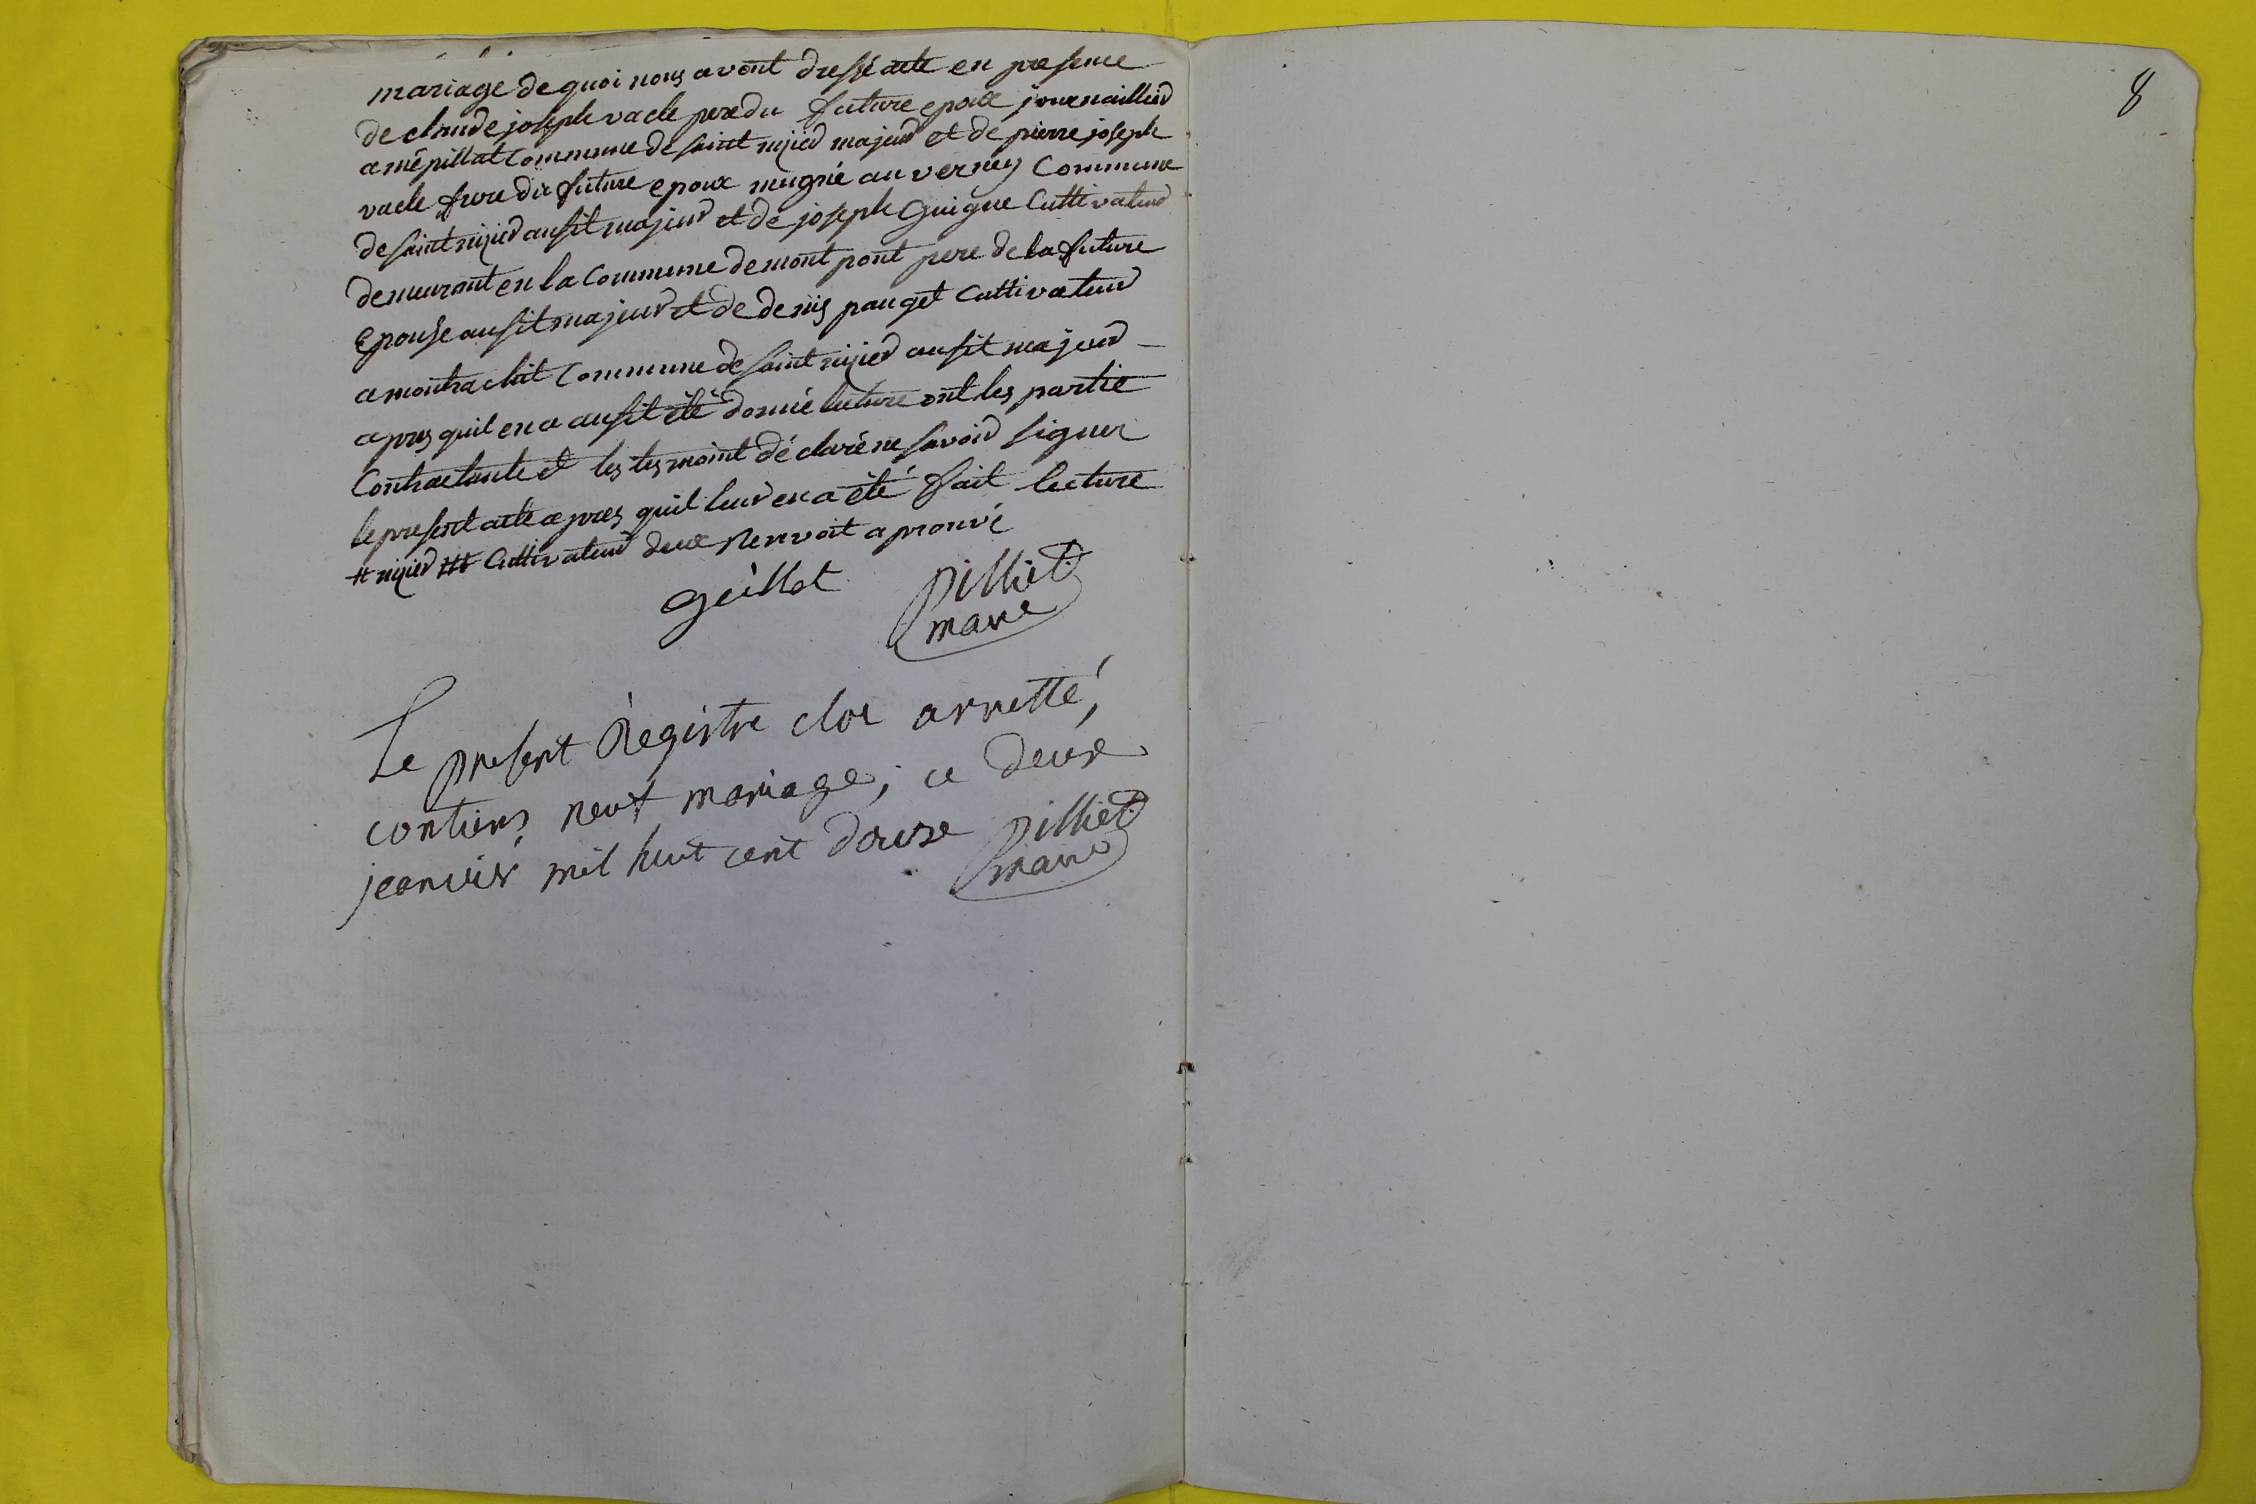 mariage de quoi nous avont dressé acte en presence
de claude joseph vacle pere du future epoux journaillier
a mépillat Commune de saint nizier majeur et de pierre joseph
vacle frere du future epoux mugnié au verney Commune
de saint nizier ausit majeur et de joseph Guigue Cultivateur
demeurant en la Commune de mont pont pere de la future
Epouse ausit majeur et de denis pauget Cultivateur
a montrachit Commune de saint nizier ausit majeur
apres quil en a ausit été donné lecture ont les partie
Contractante et les tesmoint déclaré ne savoir signer
le present acte apres quil leur en a été fait lecture
# nizier ## Cultivateur deux Renvoit aprouvé
guillot pilliet
maire
Le present Registre clos arretté,
contiens neuf mariage, ce deux
jeanvier mil huit cent douze pilliet
maire
8